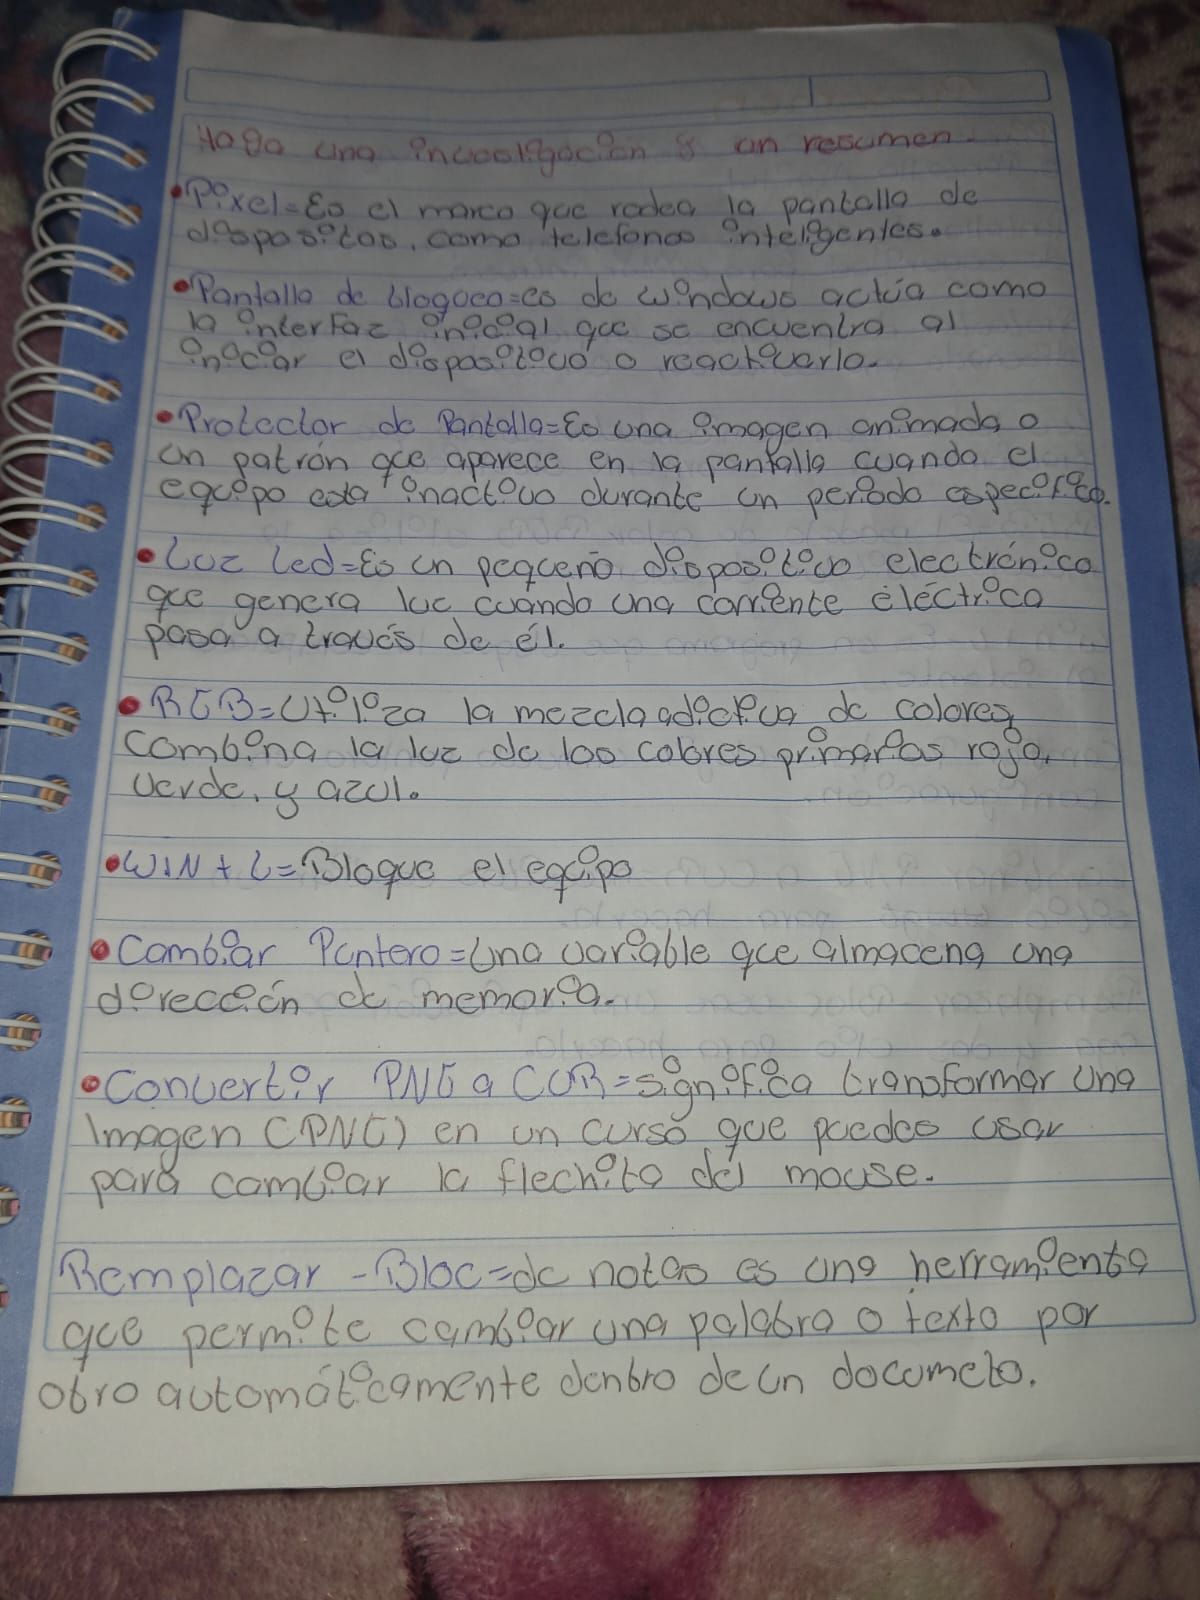 Haga una investigación y un resumen.
• Pixel = Es el marco que rodea la pantalla de
dispositos, como telefonos inteligentes.
• Pantalla de bloqueo = es de windows actúa como
la interfaz inicial que se encuentra al
iniciar el dispositivo o reactivarlo.
• Protector de Pantalla = Es una imagen animada o
un patrón que aparece en la pantalla cuando el
equipo esta inactivo durante un periodo especifico.
• Luz Led = Es un pequeño dispositivo electrónico
que genera luz cuando una corriente eléctrica
pasa a través de él.
• RGB = Utiliza la mezcla adictiva de colores
Combina la luz de los colores primarios rojo,
verde, y azul.
• WIN + L = Bloque el equipo
• Cambiar Puntero = Una variable que almacena una
dirección de memoria.
• Convertir PNG a CUR = significa transformar una
Imagen (PNG) en un curso que puedes usar
para cambiar la flechita del mouse.
Remplazar - Bloc = de notas es una herramienta
que permite cambiar una palabra o texto por
otro automáticamente dentro de un documeto.